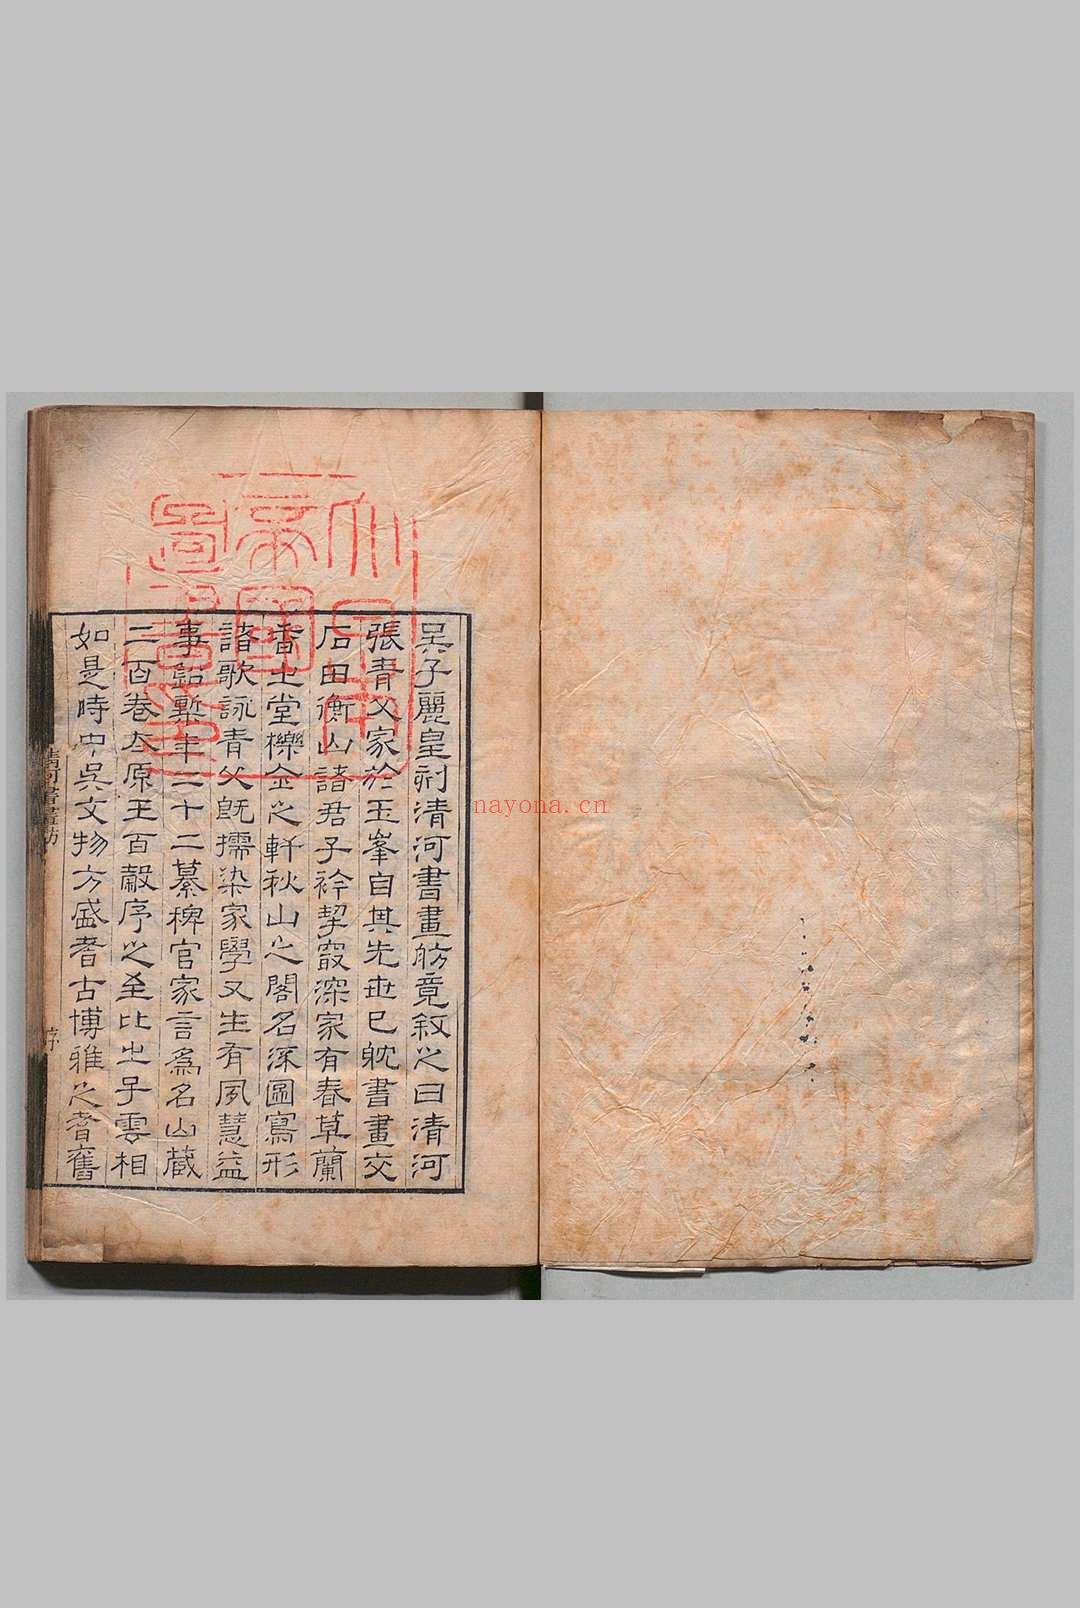 吳子麗皇刻清河書畫舫竟叙之曰清河
張青父家於玉峯自其先世已躭書畫交
石田衡山諸君子衿契㝡深家有春草蘭
香之堂櫟全之軒秋山之閣名深圖寫形
諸歌詠青父既擩染家學又生有夙慧益
事鉛槧年二十二纂稗官家言為名山藏
二百卷太原王百穀序之至比之子雲相
如是時中吳文物方盛耆古博雅之耆舊
清河書畫舫
序
大日本
帝國
圖書印
nayona.cn